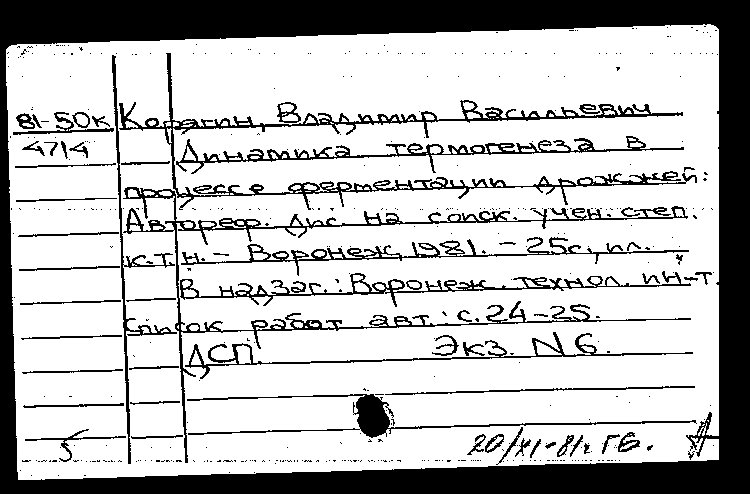 81-50к Корягин, Владимир Васильевич
4714 Динамика термогенеза в
процессе ферментации дрожжей:
Автореф. дис. на соиск. учен. степ.
к.т.н. - Воронеж, 1981. - 25с., ил.
В надзаг.: Воронеж. технол. ин-т.
Список работ авт.: с. 24-25.
ДСП. Экз. N 6.
5 20/XI-81г. ГБ.